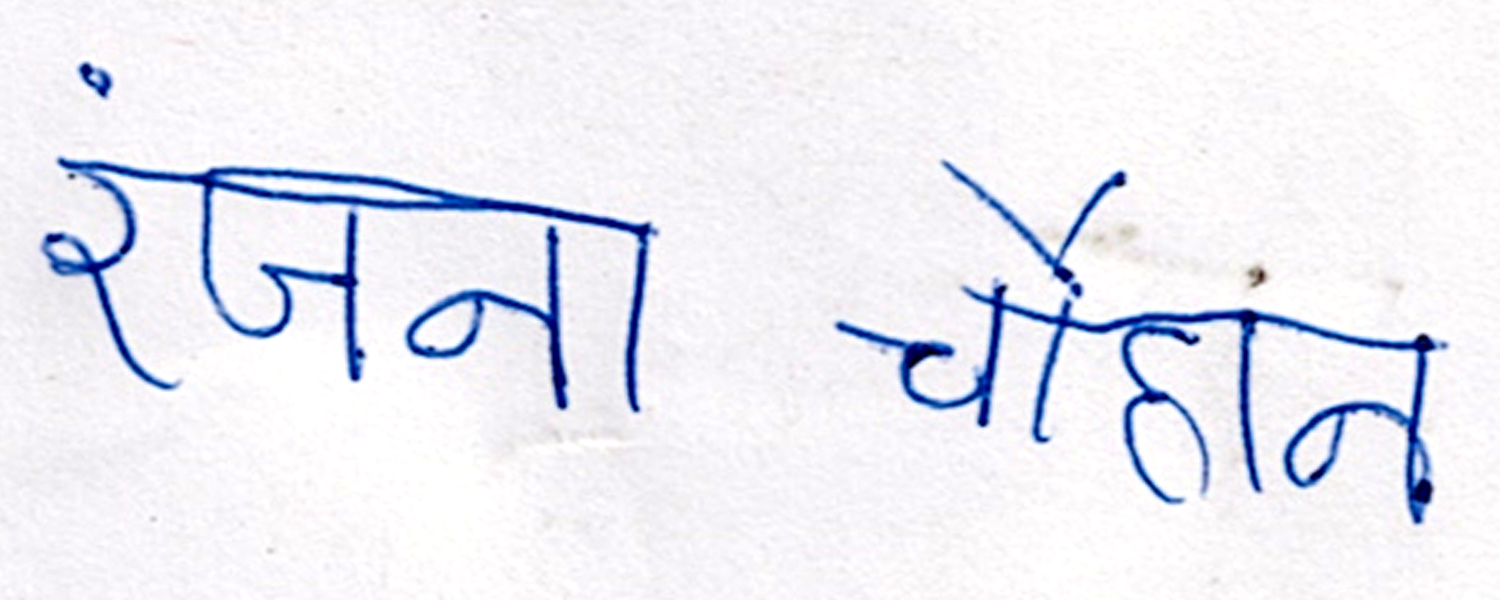 रंजना चौहान